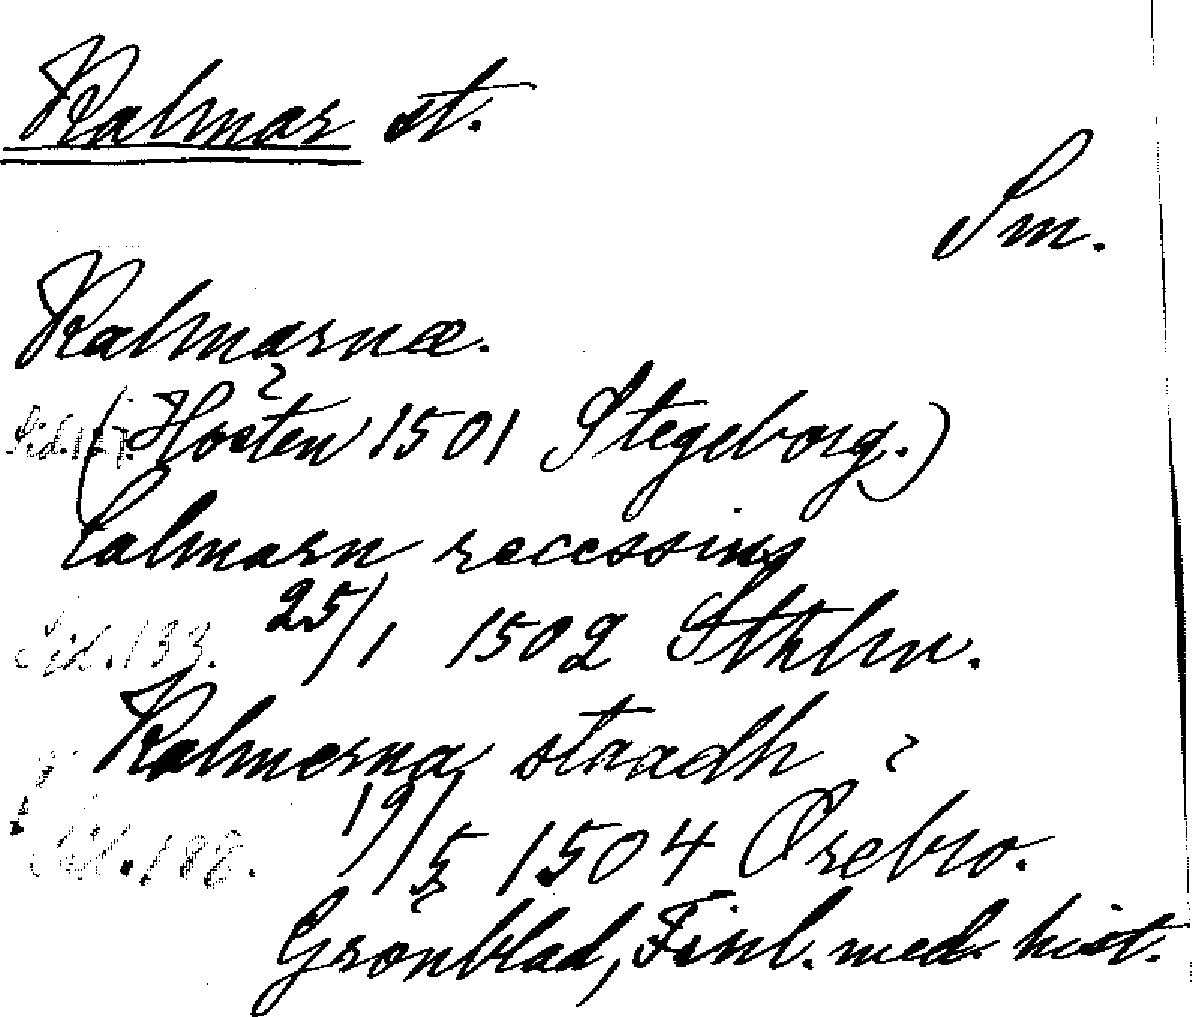 Kalmar st.
Sm.
Kalmarnæ.
(Hösten 1501 Stegeborg.)
Calmarn recessing
Sid. 133. 25/1 1502 Sthlm.
Kalmerna staadh
Sid. 188. 19/5 1504 Örebro.
Grönblad, Finl. med. hist.